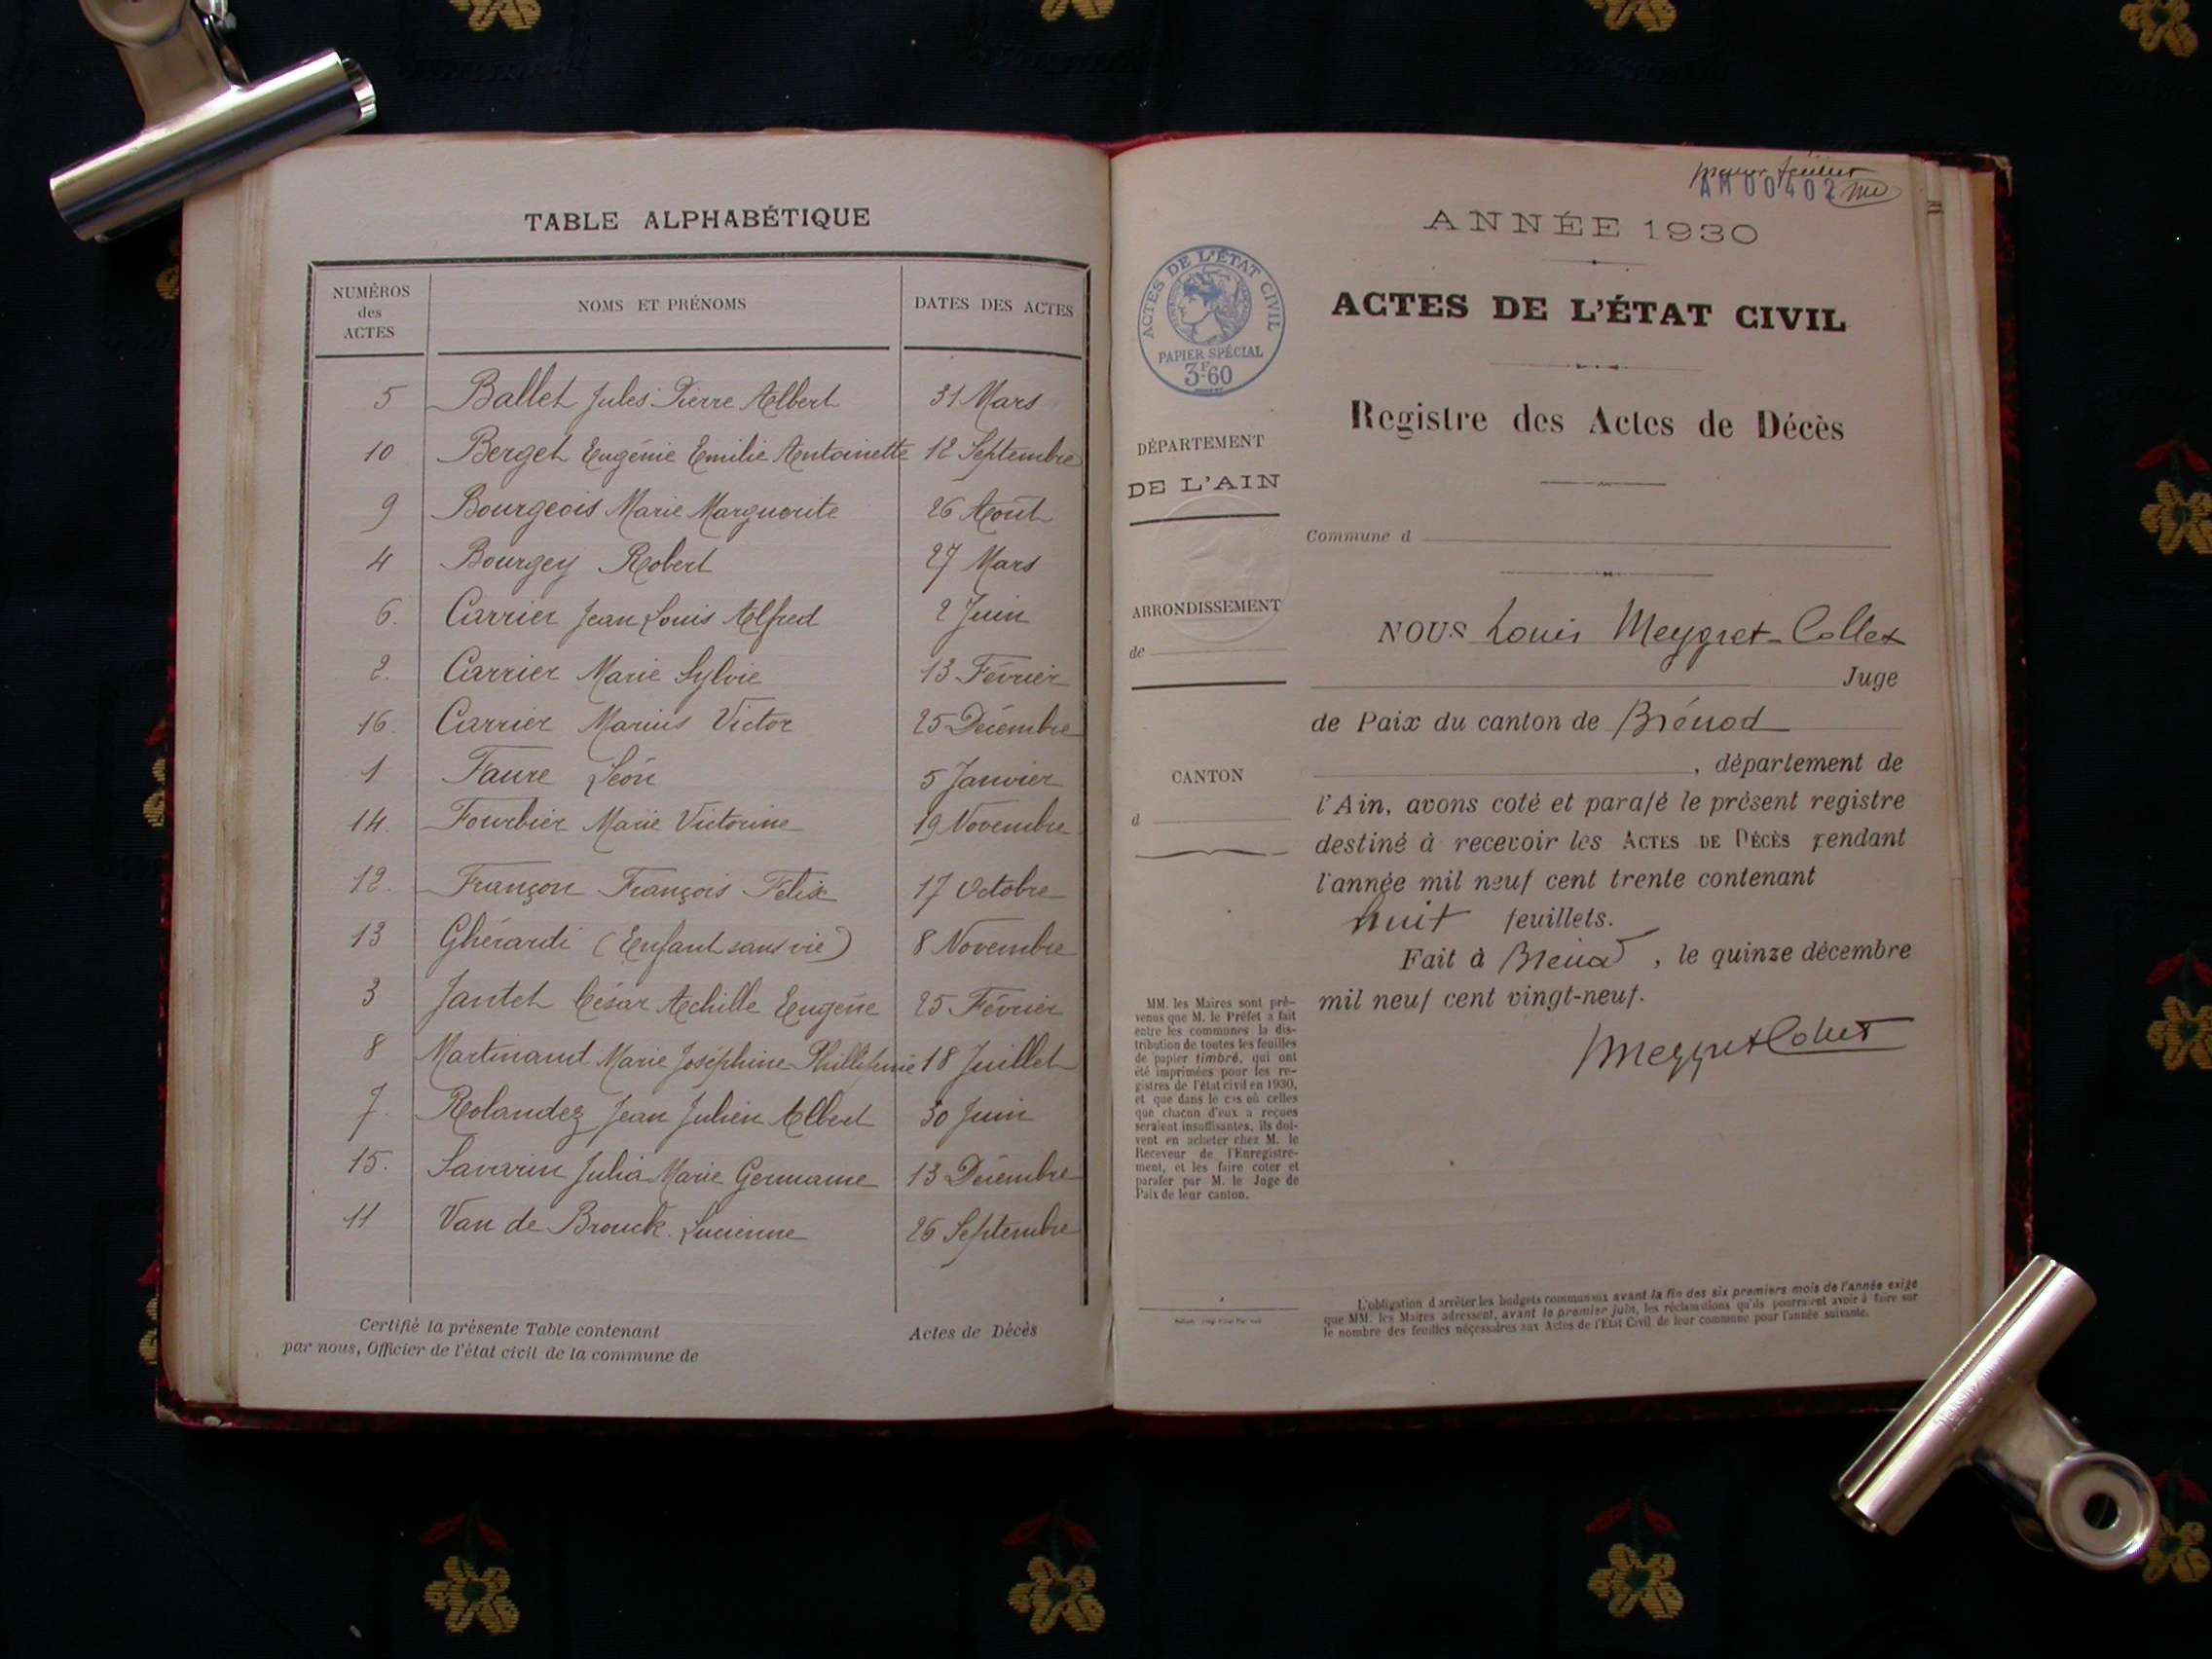 TABLE ALPHABÉTIQUE
NUMÉROS
des
ACTES
NOMS ET PRÉNOMS
DATES DES ACTES
5 Ballet Jules Pierre Albert 31 Mars
10 Berget Eugénie Emilie Antoinette 12 Septembre
9 Bourgeois Marie Marguerite 26 Août
4 Bourgey Robert 27 Mars
6. Carrier Jean Louis Alfred 2 Juin
2. Carrier Marie Sylvie 13 Février
16. Carrier Marius Victor 25 Décembre
1 Faure Léon 5 Janvier
14. Fourbier Marie Victorine 19 Novembre
12. Françon François Felix 17 Octobre
13 Ghérardi (Enfant sans vie) 8 Novembre
3 Jantet César Achille Eugène 25 Février
8 Martinand Marie Joséphine 18 Juillet
7. Rolandez Jean Julien Albert 30 Juin
15. Savarin Julia Marie Germaine 13 Décembre
11 Van de Brouck Lucienne 26 Septembre
Certifié la présente Table contenant Actes de Décès
par nous, Officier de l'état civil de la commune de
premier feuillet
AM 00402
ANNÉE 1930
ACTES DE L'ÉTAT CIVIL
PAPIER SPÉCIAL
3F60
ACTES DE L'ÉTAT CIVIL
Registre des Actes de Décès
DÉPARTEMENT
DE L'AIN
Commune d
ARRONDISSEMENT
de
CANTON
d
NOUS Louis Meygret-Collet
Juge
de Paix du canton de Brénod
, département de
l'Ain, avons coté et parafé le présent registre
destiné à recevoir les ACTES DE DÉCÈS pendant
l'année mil neuf cent trente contenant
huit feuillets.
Fait à Brénod, le quinze décembre
mil neuf cent vingt-neuf.
Meygret Collet
MM. les Maires sont pré-
venus que M. le Préfet a fait
entre les communes la dis-
tribution de toutes les feuilles
de papier timbré, qui ont
été imprimées pour les re-
gistres de l'état civil en 1930,
et que dans le cas où celles
que chacun d'eux a reçues
seraient insuffisantes, ils doi-
vent en acheter chez M. le
Receveur de l'Enregistre-
ment, et les faire coter et
parafer par M. le Juge de
Paix de leur canton.
L'obligation d'arrêter les budgets communaux avant la fin des six premiers mois de l'année exige
que MM. les Maires adressent, avant le premier juin, les réclamations qu'ils pourraient avoir à faire sur
le nombre des feuilles nécessaires aux Actes de l'Etat Civil de leur commune pour l'année suivante.